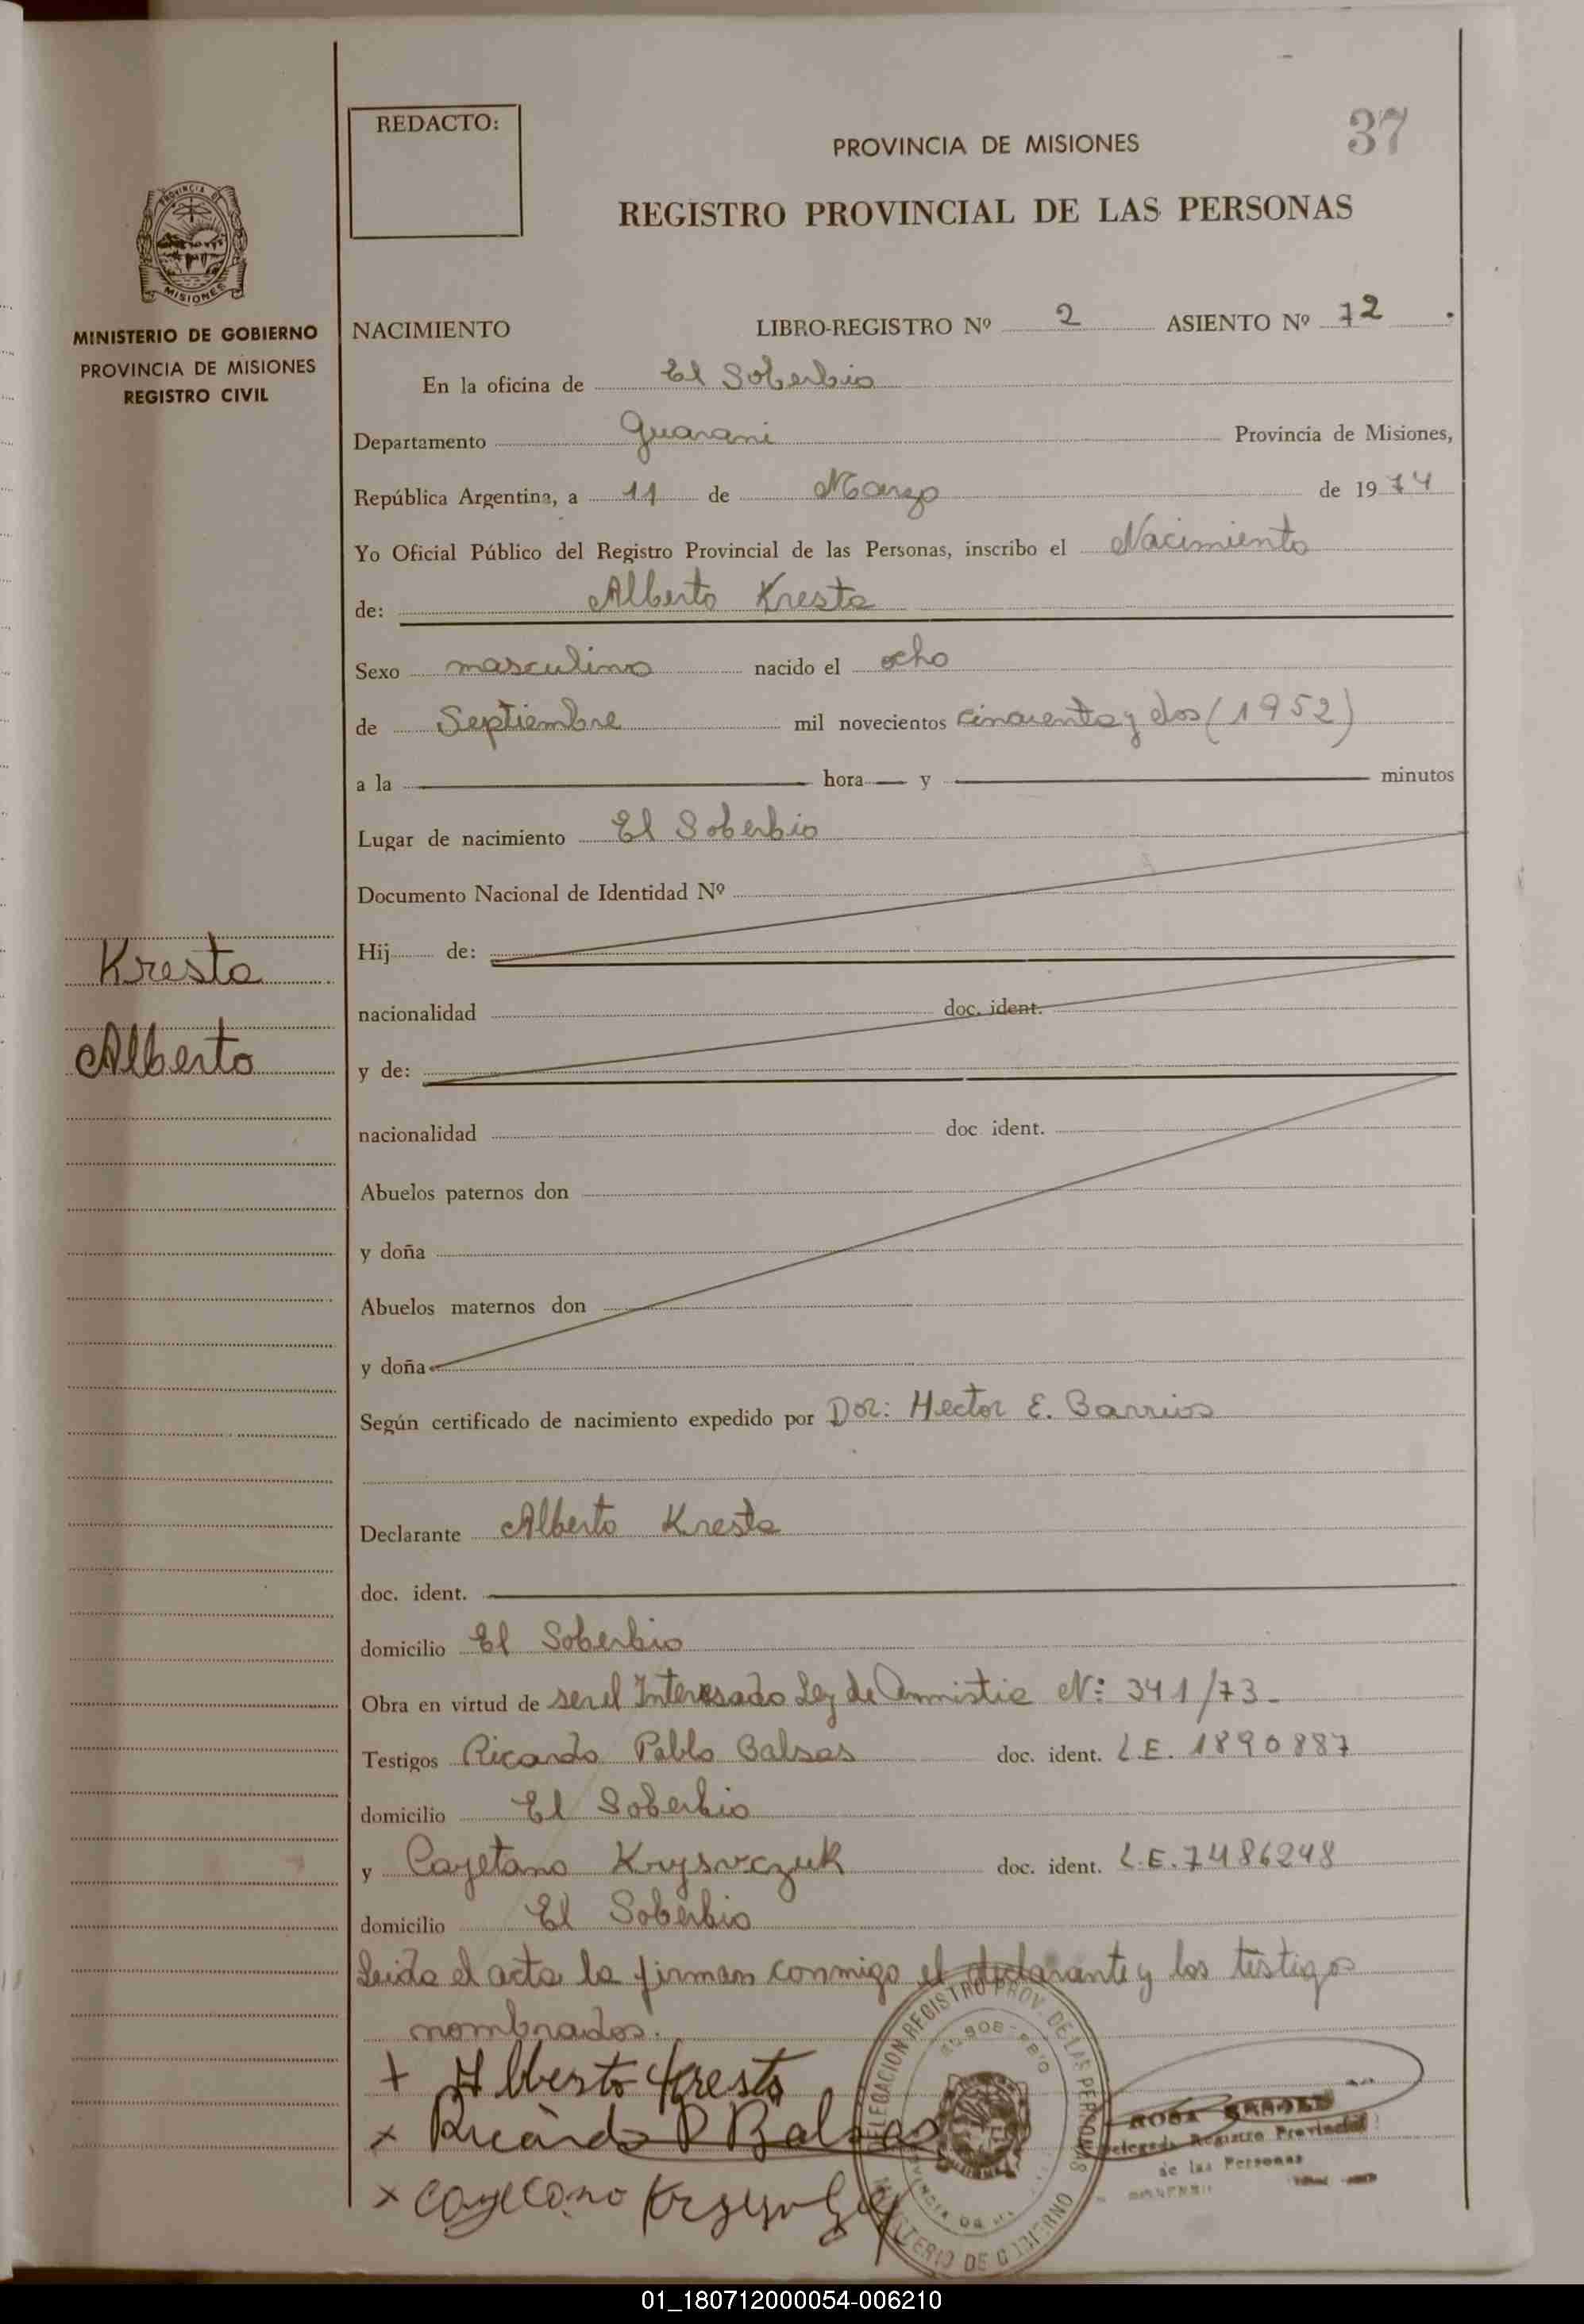 REDACTO:
37
PROVINCIA DE MISIONES
REGISTRO PROVINCIAL DE LAS PERSONAS
MISIONES
MINISTERIO DE GOBIERNO
PROVINCIA DE MISIONES
REGISTRO CIVIL
NACIMIENTO LIBRO-REGISTRO Nº 2 ASIENTO Nº 72
En la oficina de El Soberbio
Departamento Guarani Provincia de Misiones,
República Argentina, a 11 de Marzo de 1974
Yo Oficial Público del Registro Provincial de las Personas, inscribo el Nacimiento
de: Alberto Kresta
Sexo masculino nacido el ocho
de Septiembre mil novecientos cincuenta y dos (1952)
a la hora y minutos
Lugar de nacimiento El Soberbio
Documento Nacional de Identidad Nº
Hij de:
nacionalidad doc. ident.
y de:
nacionalidad doc ident.
Abuelos paternos don
y doña
Abuelos maternos don
y doña
Kresta
Alberto
Según certificado de nacimiento expedido por Dor: Hector E. Barrios
Declarante Alberto Kresta
doc. ident.
domicilio El Soberbio
Obra en virtud de ser el Interesado Ley de Amnistia Nº: 341/73-
Testigos Ricardo Pablo Balsas doc. ident. L.E. 1890887
domicilio El Soberbio
y Cayetano Krysvczuk doc. ident. L.E. 7486248
domicilio El Soberbio
Leida el acta la firman conmigo el declarante y los testigos
nombrados.
+ Alberto Kresta
x Ricardo P Balsas
x Cayetano
DELEGACION REGISTRO PROV. DE LAS PERSONAS
MINISTERIO DE GOBIERNO
ROSA
Delegada Registro Provincial
de las Personas
01_180712000054-006210